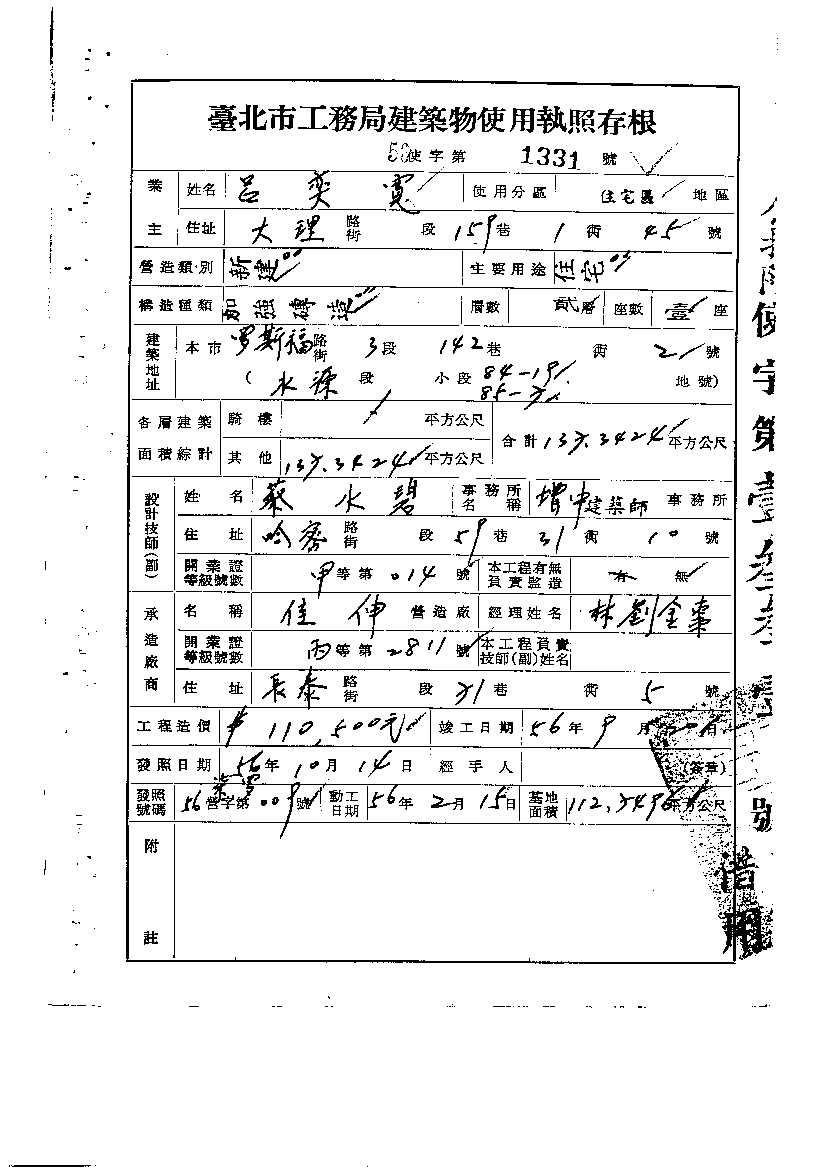 臺北市工務局建築物使用執照存根
56使字第 1331 號
業主 姓名 呂奕寬 使用分區 住宅區 地區
住址 大理 路街 段 159 巷 1 街 45 號
營造類別 新建 主要用途 住宅
構造種類 加強磚造 層數 貳層 座數 壹座
建築地址 本市 罗斯福 路街 3 段 142 巷 街 2 號
( 水源 段 小段 84-19 地號)
各層建築面積綜計 騎樓 / 平方公尺
其他 平方公尺 合計 平方公尺
設計技師(副) 姓名 蔡水碧 事務所名稱 增中建築師 事務所
住址 哈密 路街 段 59 巷 31 街 10 號
開業證等級號數 甲等第 014 號 本工程有無負責監造 有 無
承造廠商 名稱 佳伸 營造廠 經理姓名 林劉金棗
開業證等級號數 丙等第 2811 號 本工程負責技師(副)姓名
住址 長泰 路街 段 巷 街 5 號
工程造價 110,500元 竣工日期 56年 9月 20日
發照日期 56年 10月 14日 經手人 (簽章)
發照號碼 56營字第 009 號 動工日期 56年 2月 15日 基地面積 平方公尺
附註
使字第壹叁叁壹號
借用